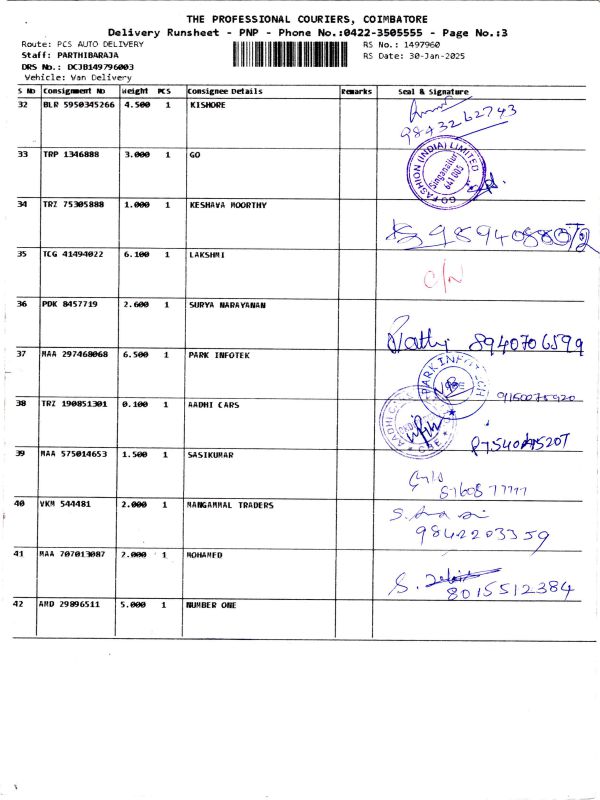 THE PROFESSIONAL COURIERS, COIMBATORE
Delivery Runsheet - PNP - Phone No.:0422-3505555 - Page No.:3
Route: PCS AUTO DELIVERY RS No.: 1497960
Staff: PARTHIBARAJA RS Date: 30-Jan-2025
DRS No.: DCJB149796003
Vehicle: Van Delivery
S No Consignment No Weight PCS Consignee Details Remarks Seal & Signature
32 BLR 5950345266 4.500 1 KISHORE
9843262743
33 TRP 1346888 3.000 1 GO
FASHION (INDIA) LIMITED
Singanallur
641 005
GO
34 TRZ 75305888 1.000 1 KESHAVA MOORTHY
35 TCG 41494022 6.100 1 LAKSHMI
C/N
36 PDK 8457719 2.600 1 SURYA NARAYANAN
8940706599
37 MAA 297468068 6.500 1 PARK INFOTEK
PARK INFOTECH
9150075920
38 TRZ 190851301 0.100 1 AADHI CARS
AADHI CARS
CBE
39 MAA 575014653 1.500 1 SASIKUMAR
40 VKM 544481 2.000 1 MANGAMMAL TRADERS
9842203359
41 MAA 707013087 2.000 1 MOHAMED
S.
8015512384
42 AMD 29896511 5.000 1 NUMBER ONE